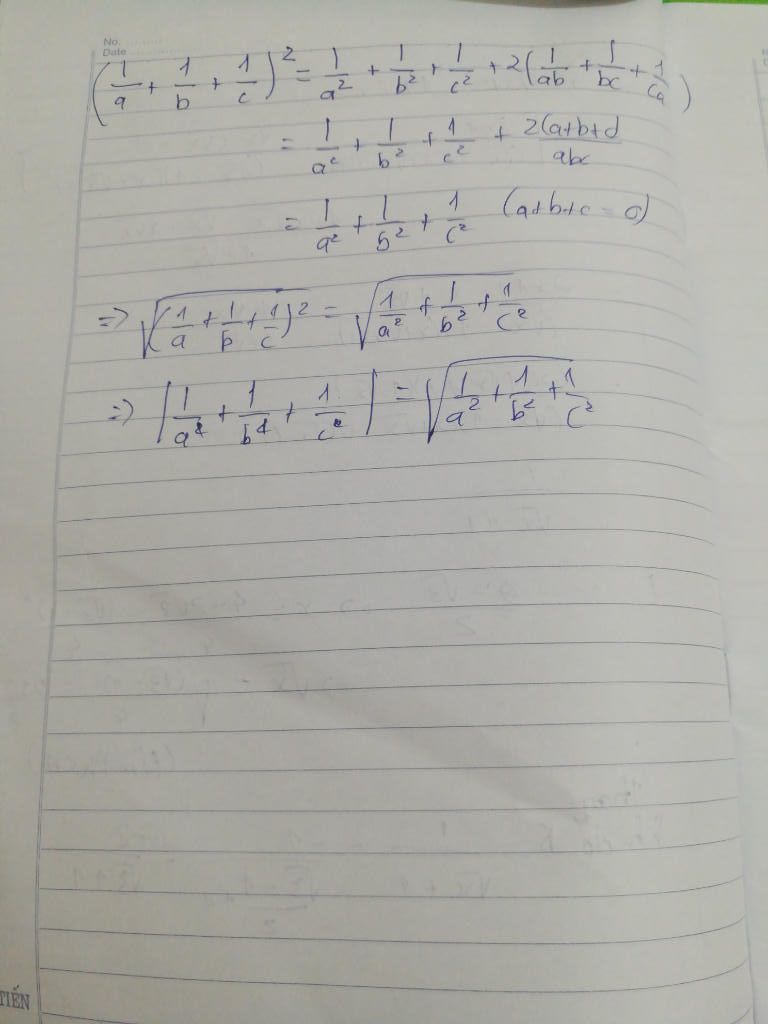 No.
Date
(1/a + 1/b + 1/c)² = 1/a² + 1/b² + 1/c² + 2(1/ab + 1/bc + 1/ca)
= 1/a² + 1/b² + 1/c² + 2(a+b+c)/abc
= 1/a² + 1/b² + 1/c² (a+b+c = 0)
=> √(1/a + 1/b + 1/c)² = √1/a² + 1/b² + 1/c²
=> |1/a + 1/b + 1/c| = √1/a² + 1/b² + 1/c²
TIẾN